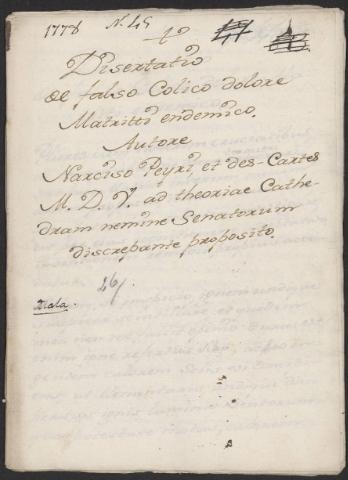 1778 N. 45
Disertatio
de falso Colico dolore
Matritti endemico.
Autore
Narciso Peyri, et des-Cartes
M. D. ad theoriae Cathe-
dram nemine Senatorum
discrepante proposito.
Mala.